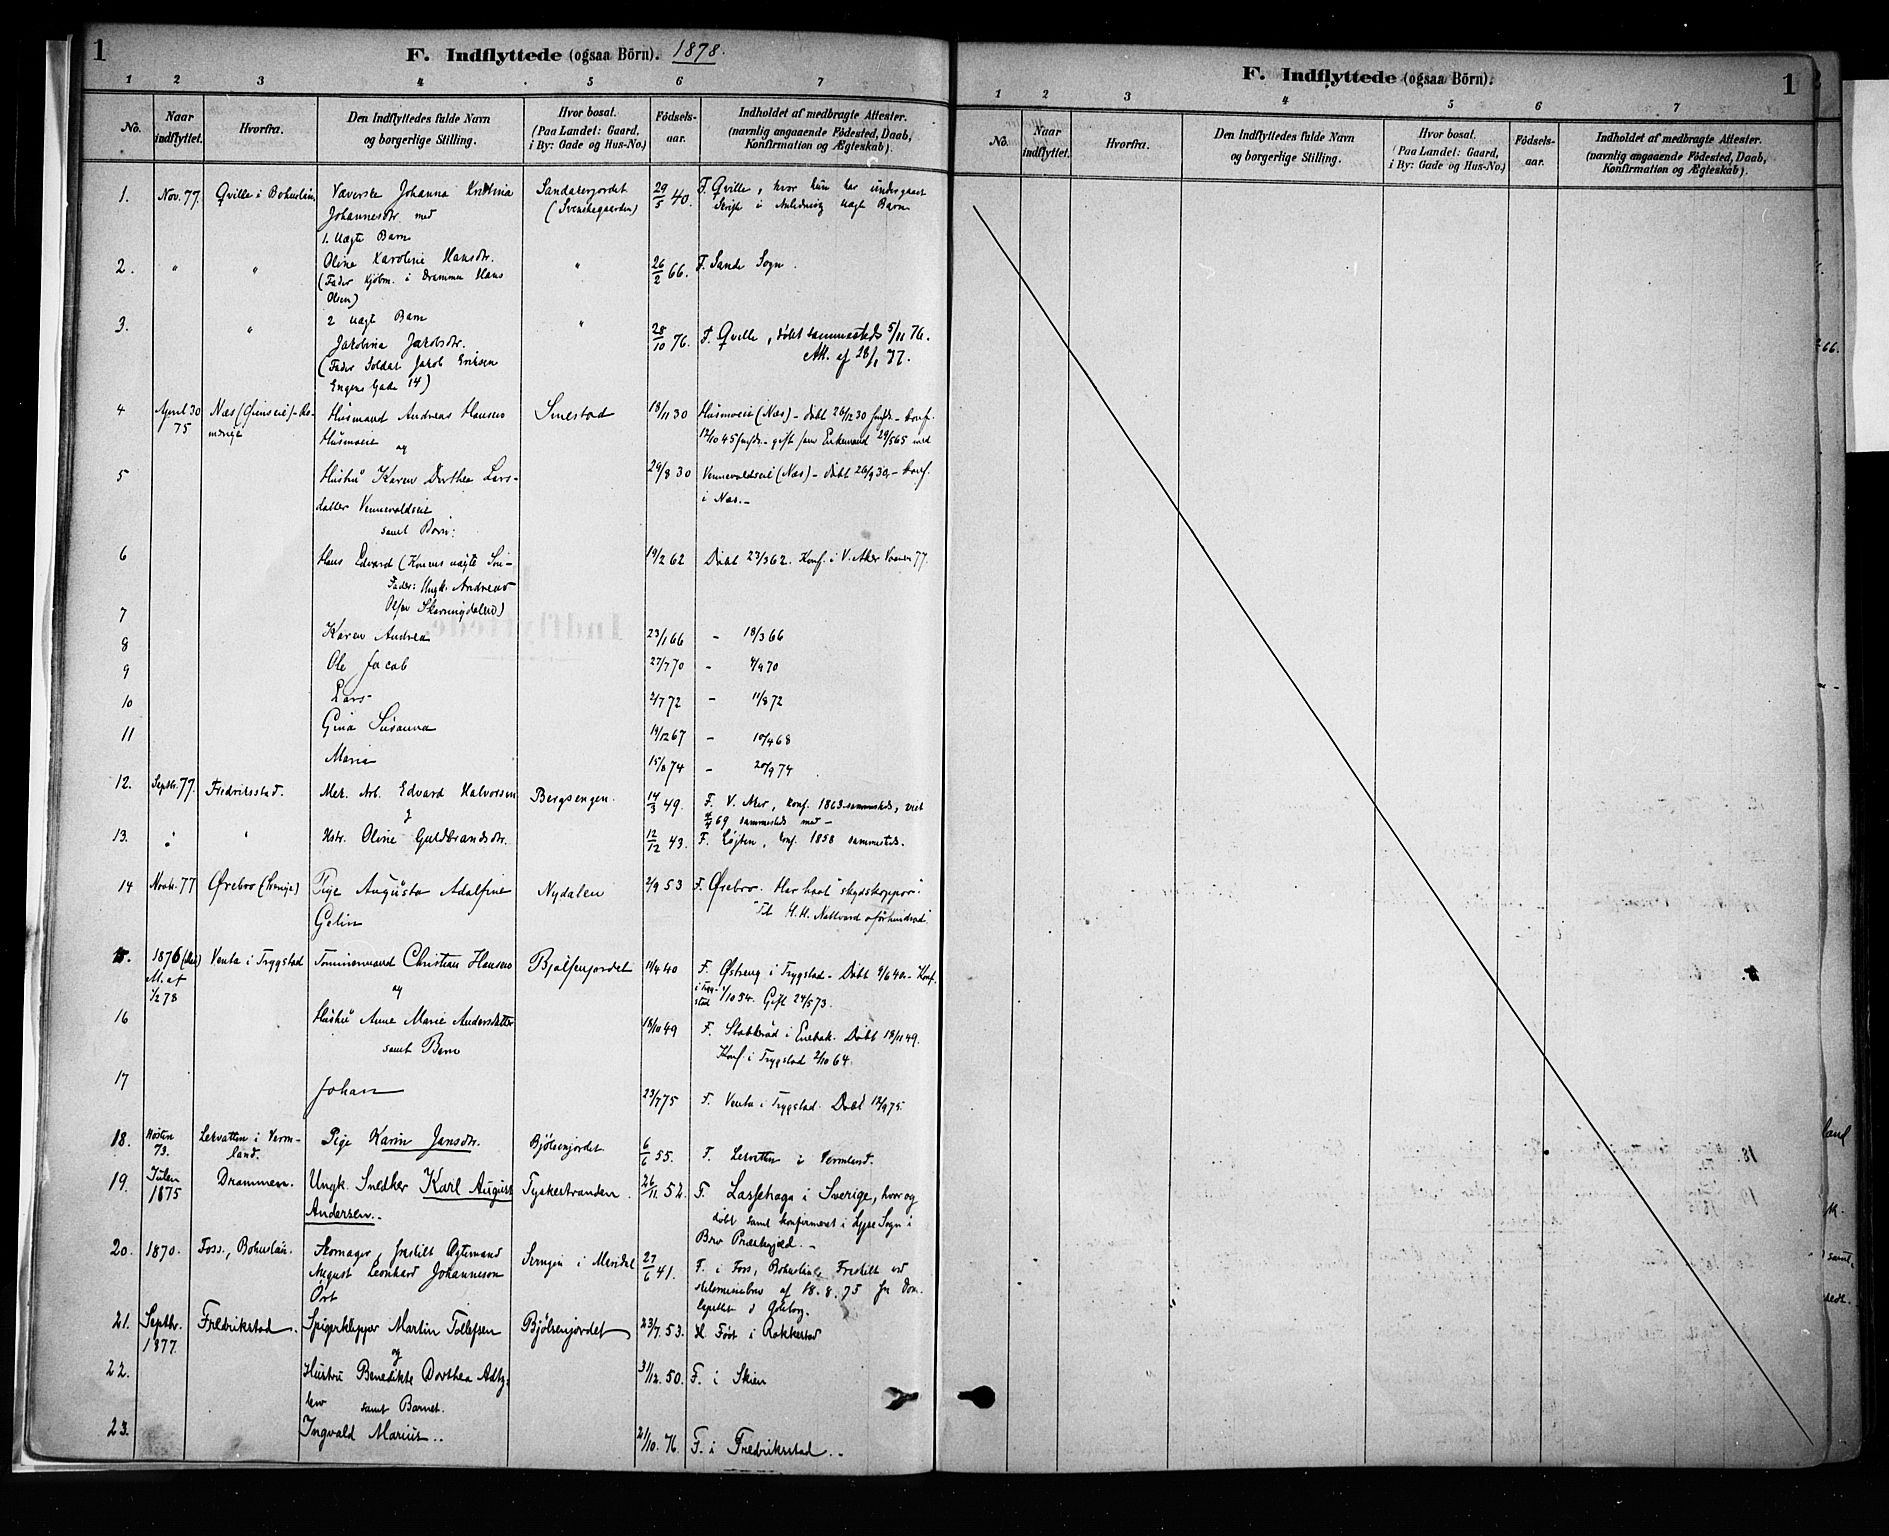 1
F. Indflyttede (ogsaa Börn). 1878.
1 2 3 4 5 6 7
No. Naar indflyttet. Hvorfra. Den Indflyttedes fulde Navn og borgerlige Stilling. Hvor bosat. (Paa Landet: Gaard, i By: Gade og Hus-No.) Födsels-aar. Indholdet af medbragte Attester. (navnlig angaaende Födested, Daab, Konfirmation og Ægteskab).
1. Nov. 77. Qville i Bohuslän Væverske Johanna Kristina Sandakerjordet 29/5 40. F. Qville, hvor hun har undergaaet
Johannesdr. med (Svenskegaarden) Skrift i Anledning uægte Barn
1. Uægte Barn
2. " " Oline Karoline Hansdr. " 26/2 66. F. Sande Sogn.
(Fader Kjøbm. i Drammen Hans
Olsen)
2 uægt Barn
3. " Jakobina Jakobsdr. " 28/10 76. F. Qville, døbt sammesteds 5/11 76.
(Fader Soldat Jakob Eriksen Att. af 28/1 77.
Engens Gade 14)
4 April 30 Næs (Øienseie) - Ro- Husmand Andreas Hansen Sinestad 18/11 30 Husmoeie (Næs) - døbt 26/12 30
75 merige Husmoeie 12/10 45 - gift som Enkemand 29/5 65 med
og
5 Hustru Karen Dorthea Lars- 29/8 30 Vennevoldseie (Næs) - Døbt 26/9 30 - konf.
datter Vennevoldseie i Næs. -
samt Børn:
6 Hans Edvard (Konens uægte Søn - 19/2 62 Døbt 23/3 62. Konf. i V. Aker Vaaren 77.
Fader: Ungk. Andreas
Olsen)
7 Karen Andrea 23/1 66 - 18/3 66
8 Ole Jacob 27/7 70 - 4/9 70
9 Lars 2/7 72 - 11/8 72
10 Gina Susanna 19/12 67 - 10/4 68
11 Maria 15/8 74 - 20/9 74
12. Septbr. 77. Fredriksstad. Mek. Arb. Edvard Halvorsen Bergsengen. 14/3 49. F. V. Aker, konf. 1863 sammesteds, viet
& 4/4 69 sammesteds med -
13. " " Hstr. Oline Guldbrandsdr. 12/12 43. F. Løjten, konf. 1858 sammesteds.
14 Novbr. 77 Ørebro (Sverige) Pige Augusta Adolfine Nydalen 2/9 53 F. Ørebro. Har havt "skydskoppor".
Gelin "Til H. H. Nattvard oförhindrad"
15. 1876 Venta i Trygstad Tømmermand Christian Hansen Bjølsenjordet 11/4 40 F. Østreng i Trygstad - Døbt 4/6 40 - Konf.
M. af og i Trygstad 1/10 54. Gift 24/5 73.
1/2 78
16 Hustru Anne Marie Andersdatter 18/10 49 F. Stokkrud i Enebak. Døbt 18/11 49.
samt Barn Konf. i Trygstad 2/10 64.
17 Johan 23/7 75 F. Venta i Trygstad. Døbt 12/9 75
18. Høsten Lervatten i Verm- Pige Karin Jansdr. Bjølsenjordet 6/6 55. F. Lervatten i Vermland.
73. land.
19. Julen Drammen. Ungk. Snedker Karl August Tyskestranden. 26/11 52. F. Lassehaga i Sverige, hvor og
1875 Andersen. døbt samt konfirmeret i Lyse Sogn i
Bro Præstegjæld. -
20. 1870. Foss, Bohuslän. Skomager, fraskilt Ægtemand Sengen i Maridal 27/6 41. F. i Foss, Bohuslän. Fraskilt ved
August Leonhard Johanneson skilsmissebrev af 18. 8. 75 fra Dom-
Ört capitlet i Göteborg.
21. Septbr. Fredrikstad. Spigerklipper Martin Tollefsen Bjølsenjordet 23/7 53. Født i Rakkestad
1877. og
22. Hustru Benedikte Dorthea 31/12 50. F. i Skien
samt Barnet.
23. Ingvald Marius. 21/10 76. F. i Fredriksstad. -
F. Indflyttede (ogsaa Börn).
1
1 2 3 4 5 6 7
No. Naar indflyttet. Hvorfra. Den Indflyttedes fulde Navn og borgerlige Stilling. Hvor bosat. (Paa Landet: Gaard, i By: Gade og Hus-No.) Födsels-aar. Indholdet af medbragte Attester. (navnlig angaaende Födested, Daab, Konfirmation og Ægteskab).